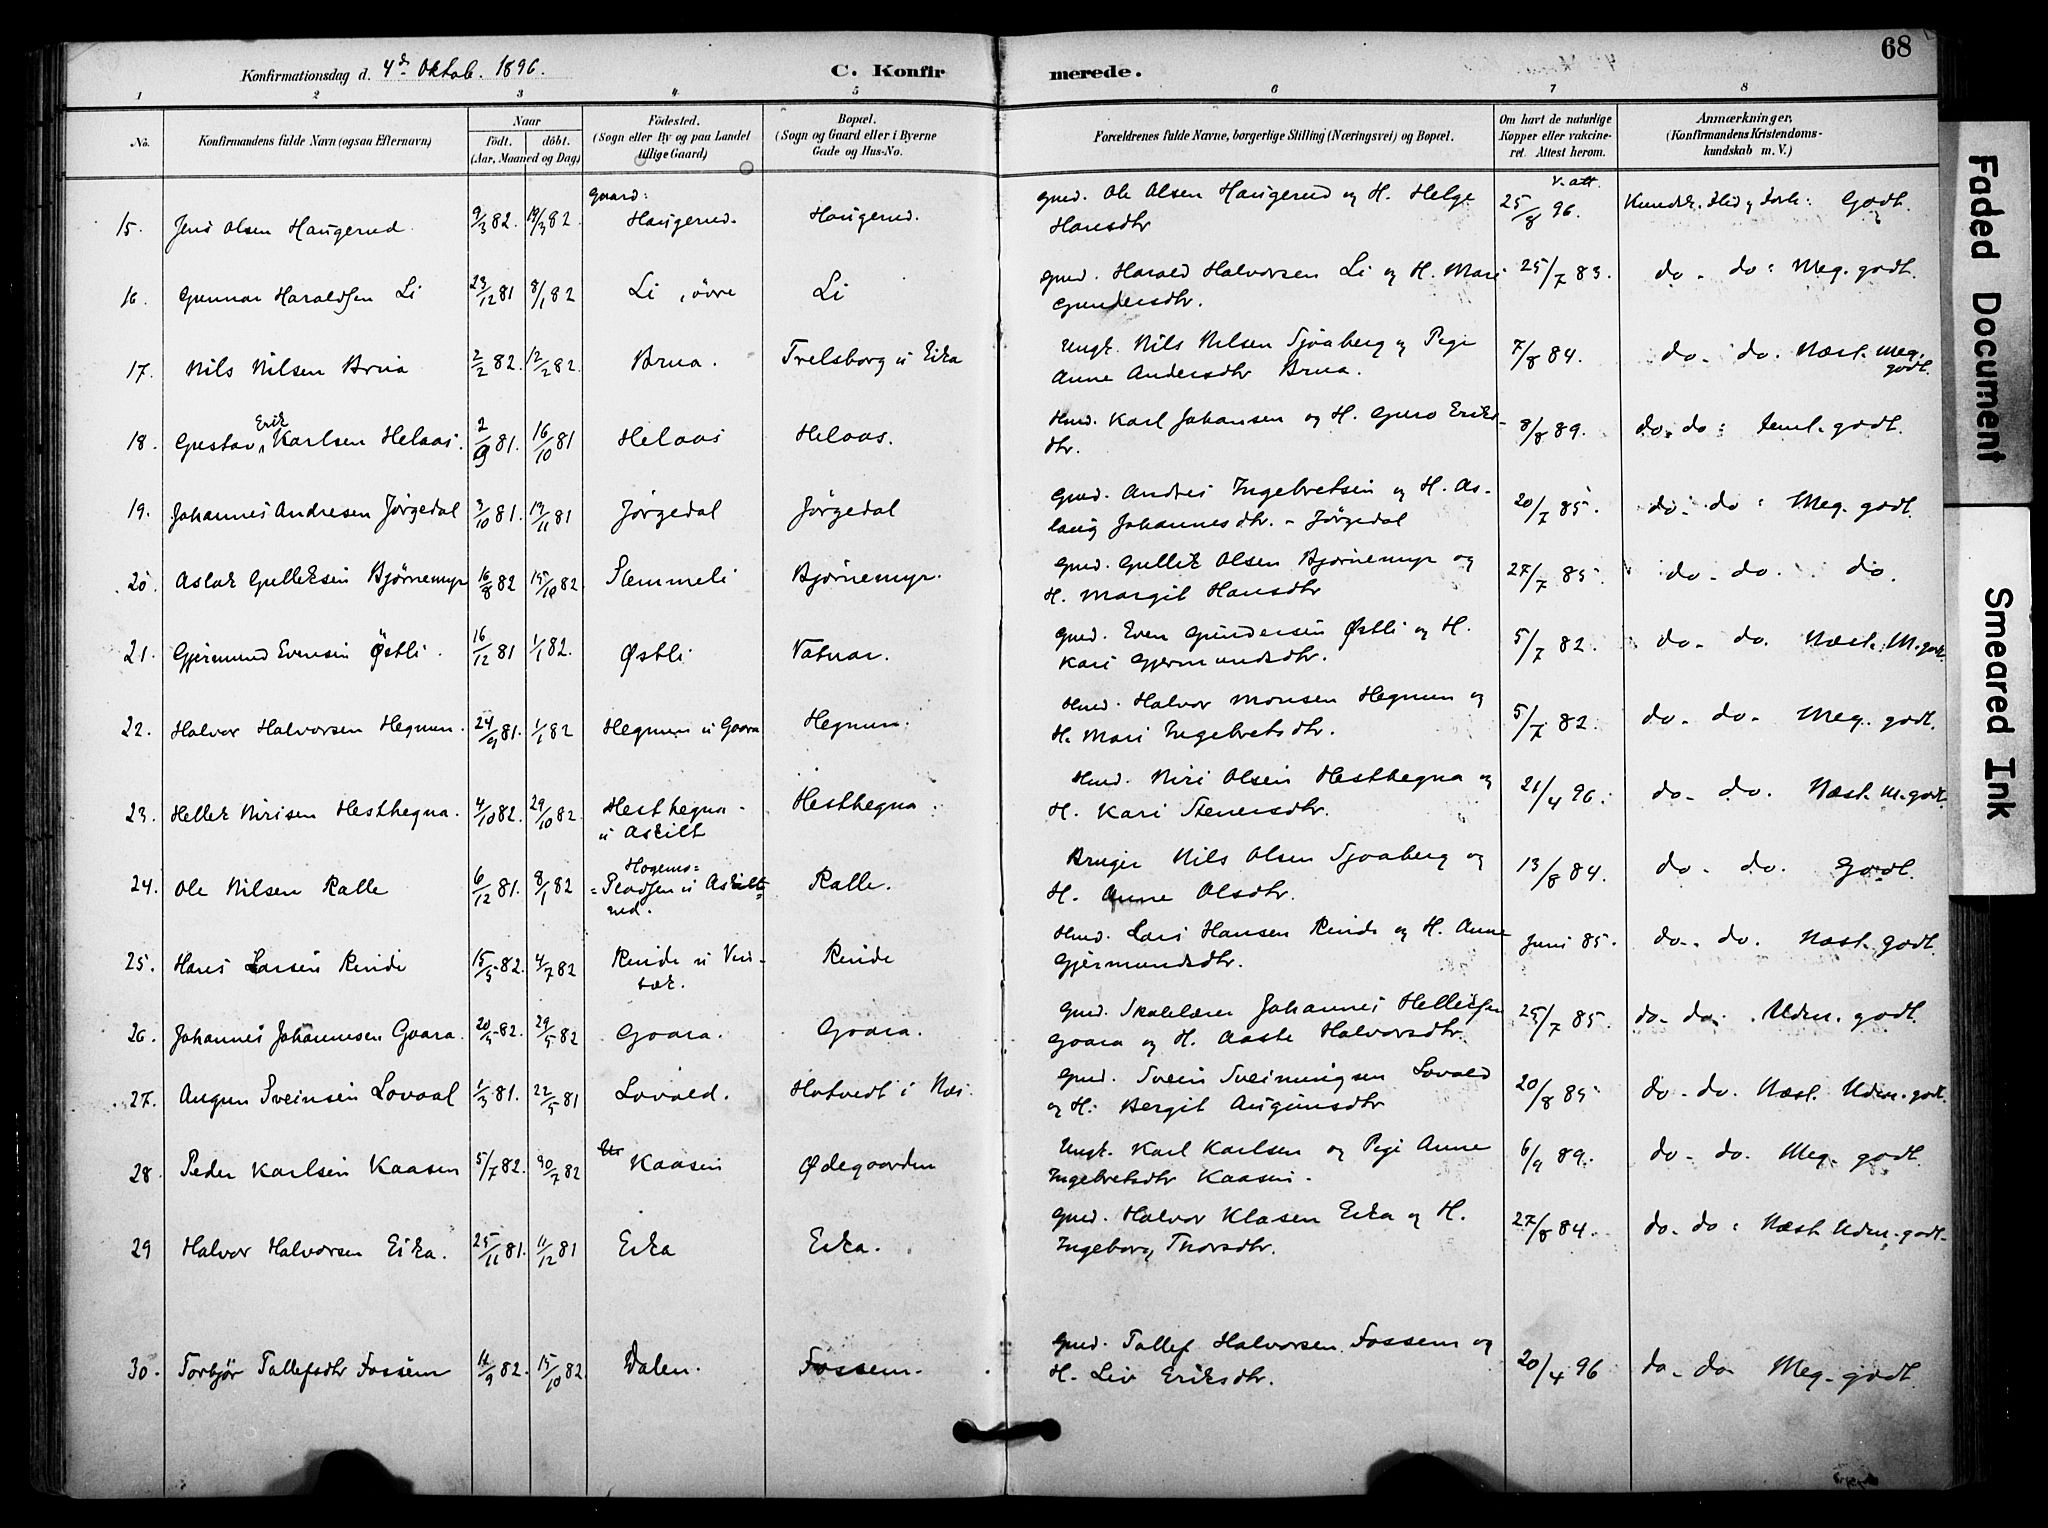 68
Konfirmationsdag d. 4de Oktob. 1896.
C. Konfirmerede.
1 2 3 4 5 6 7 8
No.
Konfirmandens fulde Navn (ogsaa Efternavn)
Naar
født. døbt.
(Aar, Maaned og Dag)
Fødested.
(Sogn eller By og paa Landet
tillige Gaard)
Bopæl.
(Sogn og Gaard eller i Byerne
Gade og Hus-No.
Forældrenes fulde Navne, borgerlige Stilling (Næringsvei) og Bopæl.
Om havt de naturlige
Kopper eller vakcine-
ret. Attest herom.
Anmærkninger,
(Konfirmandens Kristendoms-
kundskab m. V.)
15. Jens Olsen Haugerud 9/3 82. 19/3 82. Gaard: Haugerud. Haugerud. Gmd. Ole Olsen Haugerud og H. Helge
Hansdtr V. att. 25/8 96. Kundsk. Flid og Forh: Godt.
16. Gunnar Haraldsen Li 23/12 81 8/1 82 Li, övre Li Gmd. Harald Halvorsen Li og H. Mari
Gundersdtr. 25/7 83. do. do: Meg. godt.
17. Nils Nilsen Brua 2/2 82. 12/2 82. Brua. Trelsborg u Eika Ungk. Nils Nilsen Sjøaberg og Pige
Anne Andersdtr Brua. 7/8 84. do. do. Næst. meg.
godt.
18. Gustav Erik Karlsen Helaas. 2/9 81. 16/10 81 Helaas Helaas. Hmd. Karl Johansen og H. Guro Eriks-
dtr. 8/8 89. do. do: teml. godt.
19. Johannes Andresen Jörgedal 3/10 81. 13/11 81 Jörgedal Jörgedal Gmd. Andres Ingebretsen og H. As-
laug Johannesdtr. - Jörgedal 20/7 85. do. do: Meg. godt.
20. Aslak Gulleksen Bjørnemyr 16/8 82 15/10 82. Semmeli Bjørnemyr. Gmd. Gullek Olsen Bjørnemyr og
H. Margit Hansdtr 27/7 85. do. do. do.
21. Gjermund Evensen Östli. 16/12 81 1/1 82. Østli Vatnar. Gmd. Even Gundersen Østli og H.
Kari Gjermundsdtr. 5/7 82. do. do. Næst. M. godt.
22. Halvor Halvorsen Hegnum. 24/9 81. 1/1 82 Hegnum u Gaara Hegnum. Hmd. Halvor Monsen Hegnum og
H. Mari Ingebretsdtr. 5/7 82. do. do. Meg. godt.
23. Hellek Nirisen Hesthegna. 4/10 82. 29/10 82 Hesthegna -
u Askilt Hesthegna. Hmd. Niri Olsen Hesthegna og
H. Kari Stenersdtr. 21/4 96. do. do. Næst. M. godt.
24. Ole Nilsen Ralle 6/12 81. 8/1 82 u Askilt-
rud. Ralle. Bruger Nils Olsen Sjøaberg og
H. Anne Olsdtr. 13/8 84. do. do. Godt.
25. Hans Larsen Rinde 15/5 82. 4/7 82 Rinde u Rinde Hmd. Lars Hansen Rinde og H. Anne
Gjermundsdtr. Juni 85. do. do. Næst. godt.
26. Johannes Johannesen Gaara. 20/5 82. 29/5 82 Gaara. Gaara. Gmd. Skolelærer Johannes Helleksen
Gaara og H. Aaste Halvorsdtr. 25/7 85. do. do. Udm. godt.
27. Augun Sveinsen Lovaal 1/3 81. 22/5 81 Lovald. Hatvedt i Næs. Gmd. Svein Sveinungsen Lovald
og H. Bergit Augunsdtr 20/8 85 do. do. Næst. Udm. godt.
28. Peder Karlsen Kaasen 5/7 82. 30/7 82 Kaasen Ødegaarden Ungk. Karl Karlsen og Pige Anne
Ingebretsdtr Kaasen. 6/9 89. do. do. Meg. godt.
29 Halvor Halvorsen Eika. 25/11 81. 11/12 81 Eika Eika. Gmd. Halvor Klasen Eika og H.
Ingeborg Thorsdtr. 27/8 84. do. do: Næst Udm. godt.
30. Torbjör Tallefsdtr Fossem 14/9 82. 15/10 82. Dalen. Fossem. Gmd. Tallef Halvorsen Fossem og
H. Liv Eriksdtr. 20/4 96 do. do Meg. godt.
Faded Document
Smeared Ink